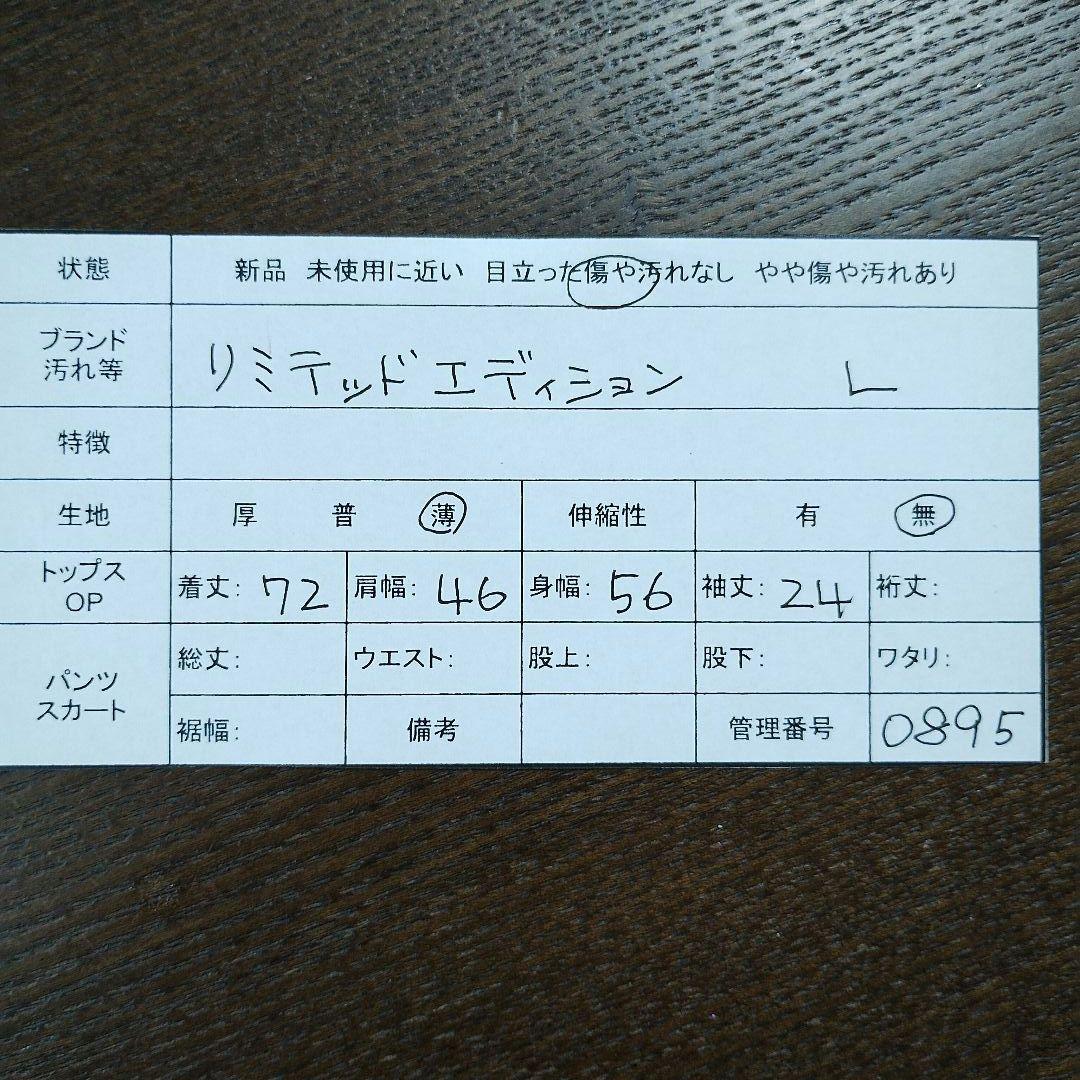 状態 新品 未使用に近い 目立った傷や汚れなし やや傷や汚れあり
ブランド
汚れ等
リミテッドエディション L
特徴
生地 厚 普 薄 伸縮性 有 無
トップス
OP
着丈: 72 肩幅: 46 身幅: 56 袖丈: 24 裄丈:
パンツ
スカート
総丈: ウエスト: 股上: 股下: ワタリ:
裾幅: 備考 管理番号 0895